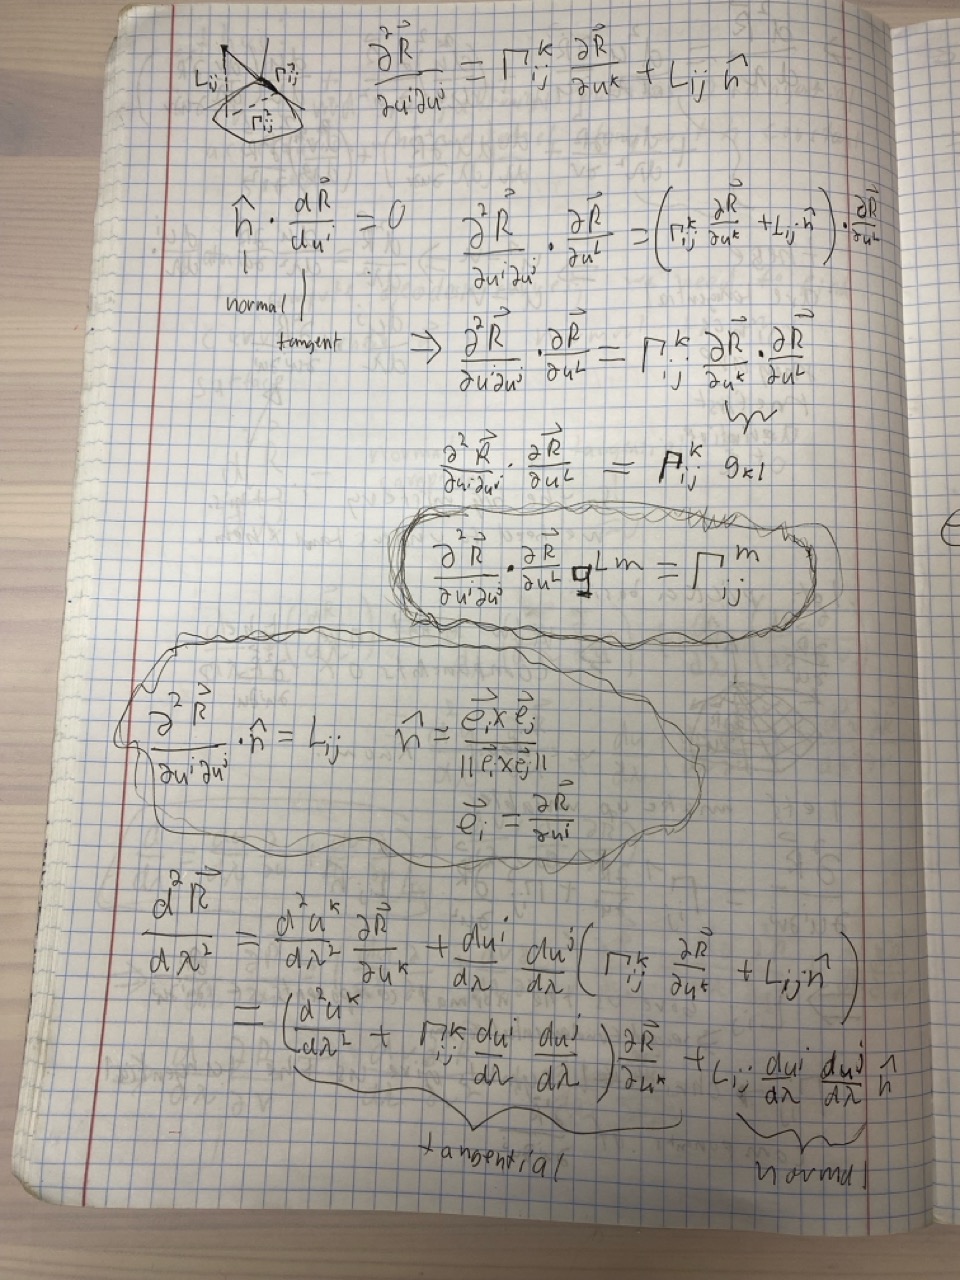 Lᵢⱼ Γ¹ᵢⱼ Γ²ᵢⱼ
∂²R⃗/∂uⁱ∂uʲ = Γᵏᵢⱼ ∂R⃗/∂uᵏ + Lᵢⱼ n̂
n̂ · dR⃗/duⁱ = 0
normal
tangent
∂²R⃗/∂uⁱ∂uʲ · ∂R⃗/∂uᴸ = (Γᵏᵢⱼ ∂R⃗/∂uᵏ + Lᵢⱼ n̂) · ∂R⃗/∂uᴸ
⇒ ∂²R⃗/∂uⁱ∂uʲ · ∂R⃗/∂uᴸ = Γᵏᵢⱼ ∂R⃗/∂uᵏ · ∂R⃗/∂uᴸ
∂²R⃗/∂uⁱ∂uʲ · ∂R⃗/∂uᴸ = Γᵏᵢⱼ gₖₗ
∂²R⃗/∂uⁱ∂uʲ · ∂R⃗/∂uᴸ gᴸᵐ = Γᵐᵢⱼ
∂²R⃗/∂uⁱ∂uʲ · n̂ = Lᵢⱼ n̂ = e⃗ᵢ×e⃗ⱼ/||e⃗ᵢ×e⃗ⱼ||
e⃗ᵢ = ∂R⃗/∂uⁱ
d²R⃗/dλ² = d²uᵏ/dλ² ∂R⃗/∂uᵏ + duⁱ/dλ duʲ/dλ (Γᵏᵢⱼ ∂R⃗/∂uᵏ + Lᵢⱼ n̂)
= (d²uᵏ/dλ² + Γᵏᵢⱼ duⁱ/dλ duʲ/dλ) ∂R⃗/∂uᵏ + Lᵢⱼ duⁱ/dλ duʲ/dλ n̂
tangential normal